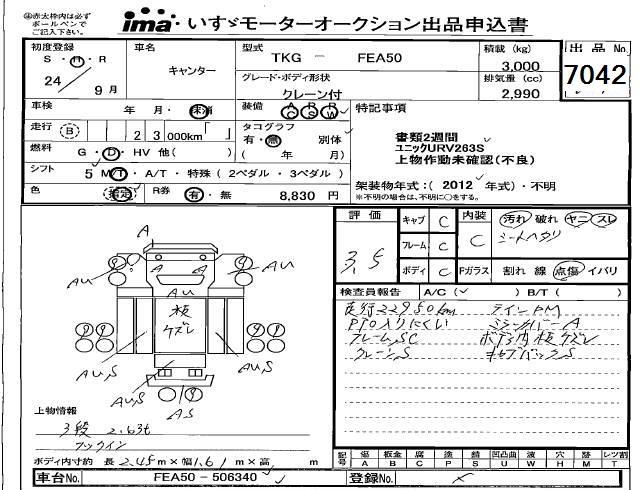 赤太枠内は必ず
ボールペンで
ご記入下さい。
ima いすゞモーターオークション出品申込書
初度登録 車名 型式 TKG - FEA50 積載 (kg) 3,000 出品No. 7042
S・H・R
24 9月 キャンター グレード・ボディ形状 クレーン付 排気量 (cc) 2,990
車検 年 月・抹消 装備 AC RS RW 特記事項
走行 B 2 3 000km「 」 タコグラフ 有・無 別体 書類2週間
ユニックURV263S
燃料 G・D・HV 他( ) ( 年 月) 上物作動未確認(不良)
シフト 5 M/T・A/T・特殊 (2ペダル・3ペダル) 架装物年式:( 2012 年式)・不明
※不明の場合は、不明に○をする。
色 R券 有・無 8,830 円
評価 キャブ C 内装 汚れ 破れ ヤニ スレ
3.5 フレーム C C シートヘタリ
ボディ C Fガラス 割れ 線 点傷 イバリ
検査員報告 A/C( ✓ ) B/T( )
走行22950km
PTO入りにくい ミラーバーA
フレームSC ボデー内板ケズレ
クレーンS
A
AU AU
AU
板
ケズレ
AU,S AU,S
AU,S
AS
上物情報
3段 2.63t
フックイン
ボディ内寸約 長 2.45m×幅1.61m×高 m
記号 傷 A 板金 B 腐 C 塗 P 錆 S 凹凸曲 U 波 W 穴 H 跡 M レツ割 T
車台No. FEA50 - 506340 登録No.